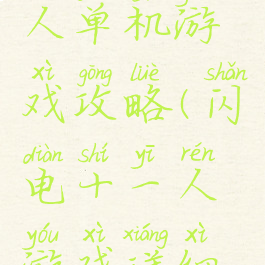 人单机游
xì gōng lüè shǎn
戏攻略(闪
diàn shí yī rén
电十一人
yóu xì xiáng xì
游戏详细